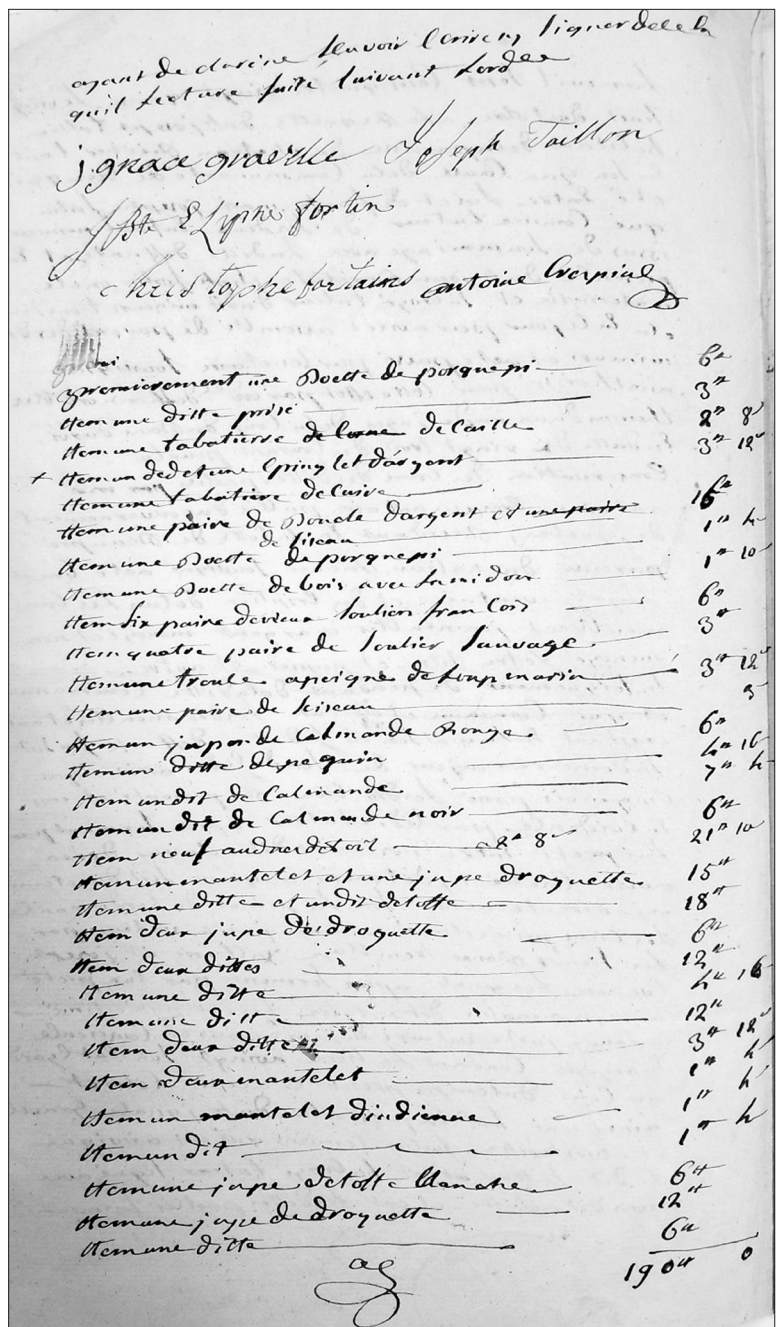 ayant de claréne Scavoir Ecrire ny Signer de ce
quil Lecture faite Suivant Lordce
jgnace graveLle Joseph Taillon
J Bte ELiphe fortin
Christophe fortains antoine Crespiul
premierement une Boette de porquepi 6"
Item une ditte prisé 3"
Item une tabatierre de Corne de Caille 2" 8
Item un dedet une Epinglet dárgent 3" 12
Item une tabatiére de Cuivre
Item une paire de Boucle dargent et une paire 16
de siseau
Item une Boette de porquepi 1" 4
Item une Boette de bois avec Lamidon 1" 10
Item Six paire devieux Soulien francois 6"
Item quatre paire de Soulier Sauvage 3"
Item une troule apeigne de Loup marin 3" 12
Item une paire de Siseau
Item un jupon de Calmande Rouge 6"
Item un ditte de pequin 4" 16
Item un dit de Calmande 7" 4
Item un dit de Calmande noir 6"
Item neuf audne de toil a 2" 8 21" 10
Item un mantelet et une jupe droguette 15"
Item une ditte et un dit detoffe 18"
Item deux jupe de droguette 6"
Item deux dittes 12"
Item une ditte 4" 16
Item une ditt 12"
Item deux ditte 3" 12
Item deux mantelet 1" 4
Item un mantelet dindienne 1" 4
Item un dit 1" 4
Item une jupe detoffe blanche 6"
Item une jupe de droguette 12"
Item une ditte 6"
190" 0